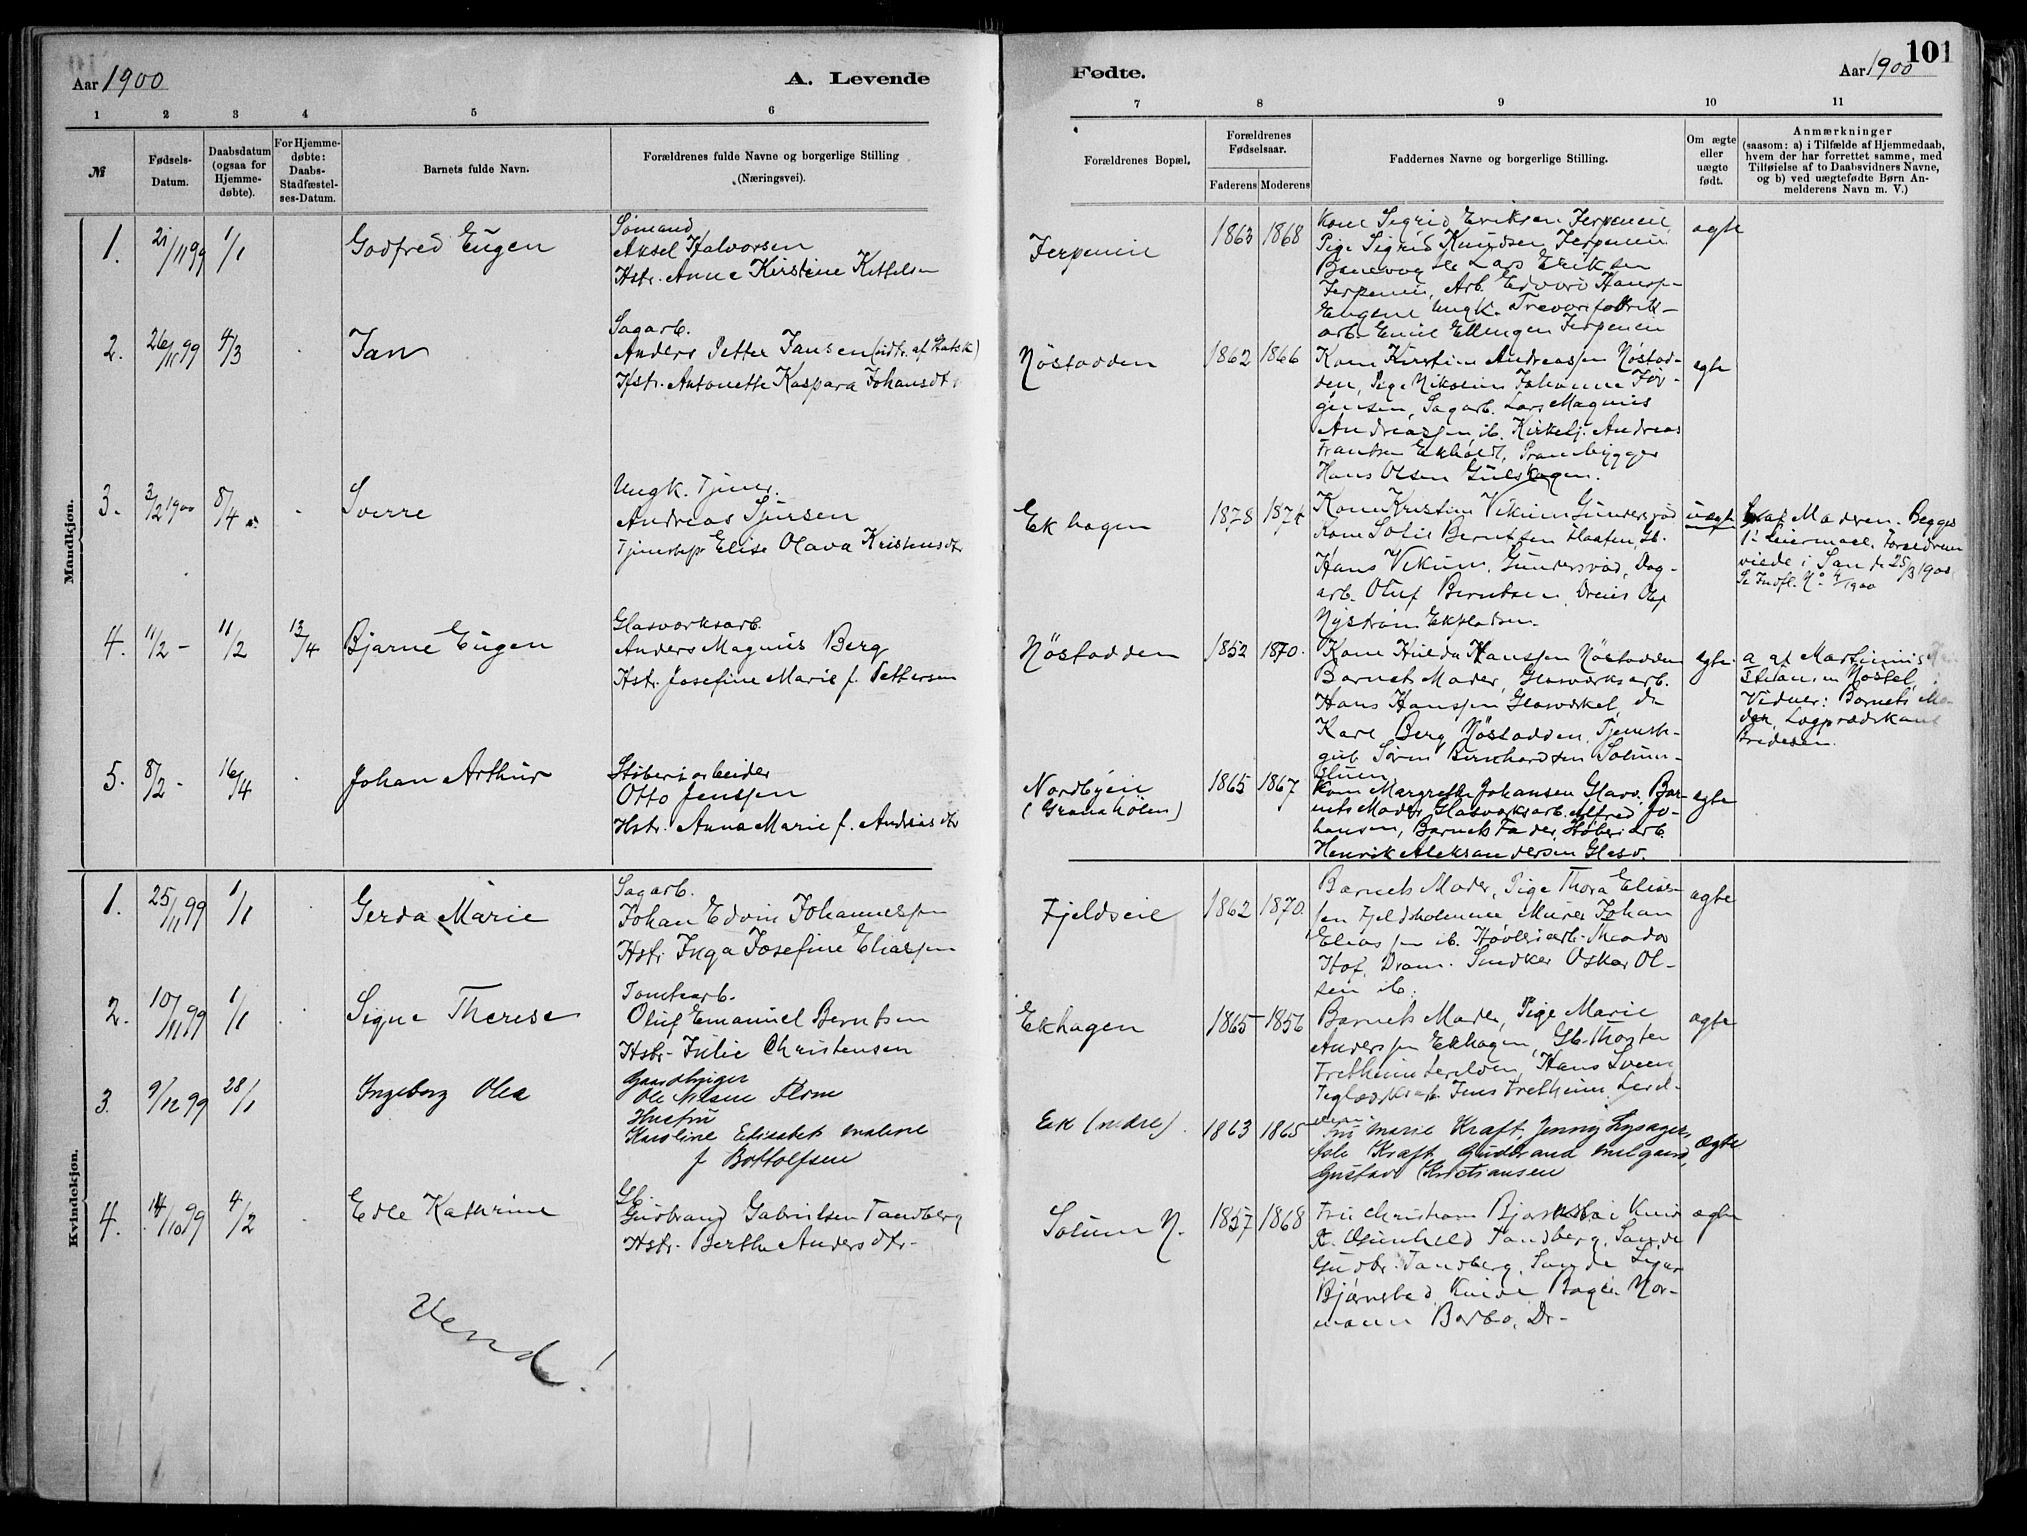 Aar 1900
A. Levende
Fødte.
Aar 1900
101
1 2 3 4 5 6 7 8 9 10 11
№
Fødsels-
Datum.
Daabsdatum
(ogsaa for
Hjemme-
døbte).
For Hjemme-
døbte:
Daabs-
Stadfæstel-
ses-Datum.
Barnets fulde Navn.
Forældrenes fulde Navne og borgerlige Stilling
(Næringsvei).
Forældrenes Bopæl.
Forældrenes
Fødselsaar.
Faderens
Moderens
Faddernes Navne og borgerlige Stilling.
Om ægte
eller
uægte
født.
Anmærkninger
(saasom: a) i Tilfælde af Hjemmedaab,
hvem der har forrettet samme, med
Tilføielse af to Daabsvidners Navne,
og b) ved uægtefødte Børn An-
melderens Navn m. V.)
Mandkjøn.
1. 21/11 99 1/1 Godfred Eugen
Sømand
Aksel Halvorsen
Hstr. Anne Kirstine Kittelsen
1863 1868
Kone Sigrid Eriksen
Pige Sigrid Knudsen
Lars Eriksen
Arb. Edvard Hansen
Eugene Ungk. Trevarefabrik-
arb. Emil Ellingsen
ægte
2. 26/11 99 4/3 Jan
Sagarb.
Anders Petter Jansen (udtr. af Statsk)
Hstr. Antonette Kaspara Johansdtr
Nøstodden
1862 1866
Kone Kirstine Andreassen Nøstod-
den, Pige Nikoline Johanne Jør-
gensen, Sagarb. Lars Magnus
Andreassen ib. Kirkelj. Andreas
Frantsen Ekholdt, Prambygger
Hans Olsen Gulskogen.
egte
3. 3/2 1900 8/4 Sverre
Ungk. Tjener.
Andreas Sjursen
Tjenestep Elise Olava Kristensdtr
Ekhagen
1878 1874
Kone Kristine Vikum Gundersrød
Kone Sofie Berntsen Flaaten, Gb.
Hans Vikum, Gundersrød, Dag-
arb. Oluf Berntsen, Dreier Olaf
Nystrøm Ekstadsen.
uægte
af Modren. Begges
1ste Leiermaal. Forældrene
viede i San de 25/3 1900.
Se Indfl. No. 4/1900
4. 11/2 - 11/2 13/4 Bjarne Eugen
Glasværksarb.
Anders Magnus Berg
Hstr. Josefine Marie f. Pettersen
Nøstodden
1852 1870.
Kone Hulda Hanssen Nøstodden
Barnets Moder, Glasværksarb.
Hans Hanssen Glasværket, do
Karl Berg Nøstodden, Tjeneste-
gut Søren Bernhardsen Solum-
egte
a af Martinius
i Nøstet
Vidner: Barnets Mo-
der, Lægprædikant
Bredesen.
5. 8/2 - 16/4 Johan Arthur
Støberiarbeider
Otto Jenssen
Hstr. Anna Marie f. Andreasdtr
Nordbyeie
(Granaholen)
1865 1867
Kone Margrethe Johansen Glasv. Bar-
nets Moder, Glasværksarb. Alfred Jo-
hansen, Barnets Fader, Støberiarb.
Henrik Aleksandersen Glasv.
egte
Kvindekjøn.
1. 25/11 99 1/1 Gerda Marie
Sagarb.
Johan Edvin Johannessen
Hstr. Inga Josefine Eliassen
Fjeldseie
1862 1870.
Barnets Moder, Pige Thora Elias-
sen Fjeldsholmene Murer Johan
Eliassen ib. Høvleriarb. Theodor
Hof, Dram. Snedker Oskar Ol-
sen ib.
ægte
2. 10/11 99 1/1 Signe Therese
Tomtearb.
Oluf Emanuel Berntsen
Hstr. Julie Christensen
Ekhagen
1865 1856
Barnets Moder, Pige Marie
Anderssen Ekhagen, Gb. Thorsten
Fretheim Lerelven, Hans Sveen
Jens Fretheim,
ægte
3. 9/12 99 28/1 Ingeborg Olea
Gaardbruger
Ole Nilsen
Hustru
Karoline Elisabet Maline
f Bottolfsen
Ek (nedre).
1863 1865
Fru Marie Kraft, Jenny Lysager,
Kraft, Gudbrand
Gustav Kristiansen
Ægte
4. 14/10 99 4/2 Edle Kathrine
Gb.
Gudbrand Gabrielsen Tandberg
Hstr. Berthe Andersdtr.
Solum N.
1857 1868
Fru Christiane Bjørnstad
K. Gunhild Tandberg, Sande
Gudbr. Tandberg, Sande
Bjørnstad Bager Nor-
mann Barbo, Dr-
ægte
Vend!